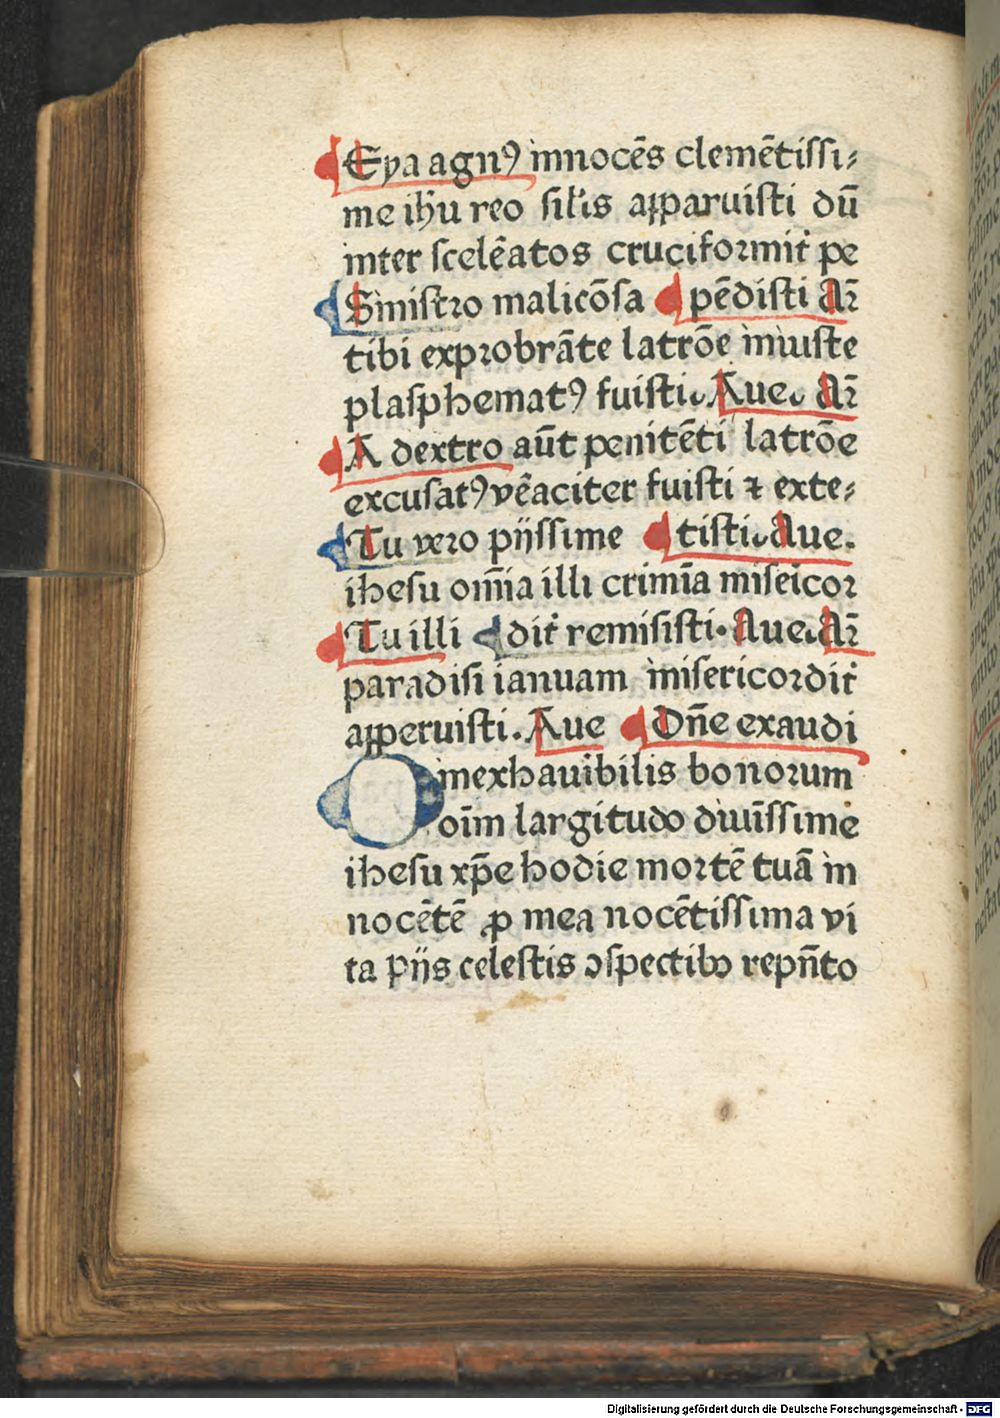 Eya agnꝰ innocēs clemētissi-
me ihū reo sil'is apparuisti dū
inter scelēatos cruciformit̄ pe
Sinistro malicōsa pēdisti Ar̄
tibi exprobrāte latrōe iniuste
plasphematꝰ fuisti. Aue. Ar̄
A dextro aūt penitēti latrōe
excusatꝰ vēaciter fuisti ⁊ exte-
Tu vero pijssime tisti. Aue.
ihesu om̄ia illi crimīa miseicor
Tu illi dit̄ remisisti. Aue. Ar̄
paradisi ianuam misericordit̄
apperuisti. Aue Dn̄e exaudi
O inexhauibilis bonorum
oīm largitudo diuīssime
ihesu xp̄e hodie mortē tuā in
nocētē ꝓ mea nocētissima vi
ta pijs celestis ɔspectibꝫ repn̄to
Digitalisierung gefördert durch die Deutsche Forschungsgemeinschaft - DFG